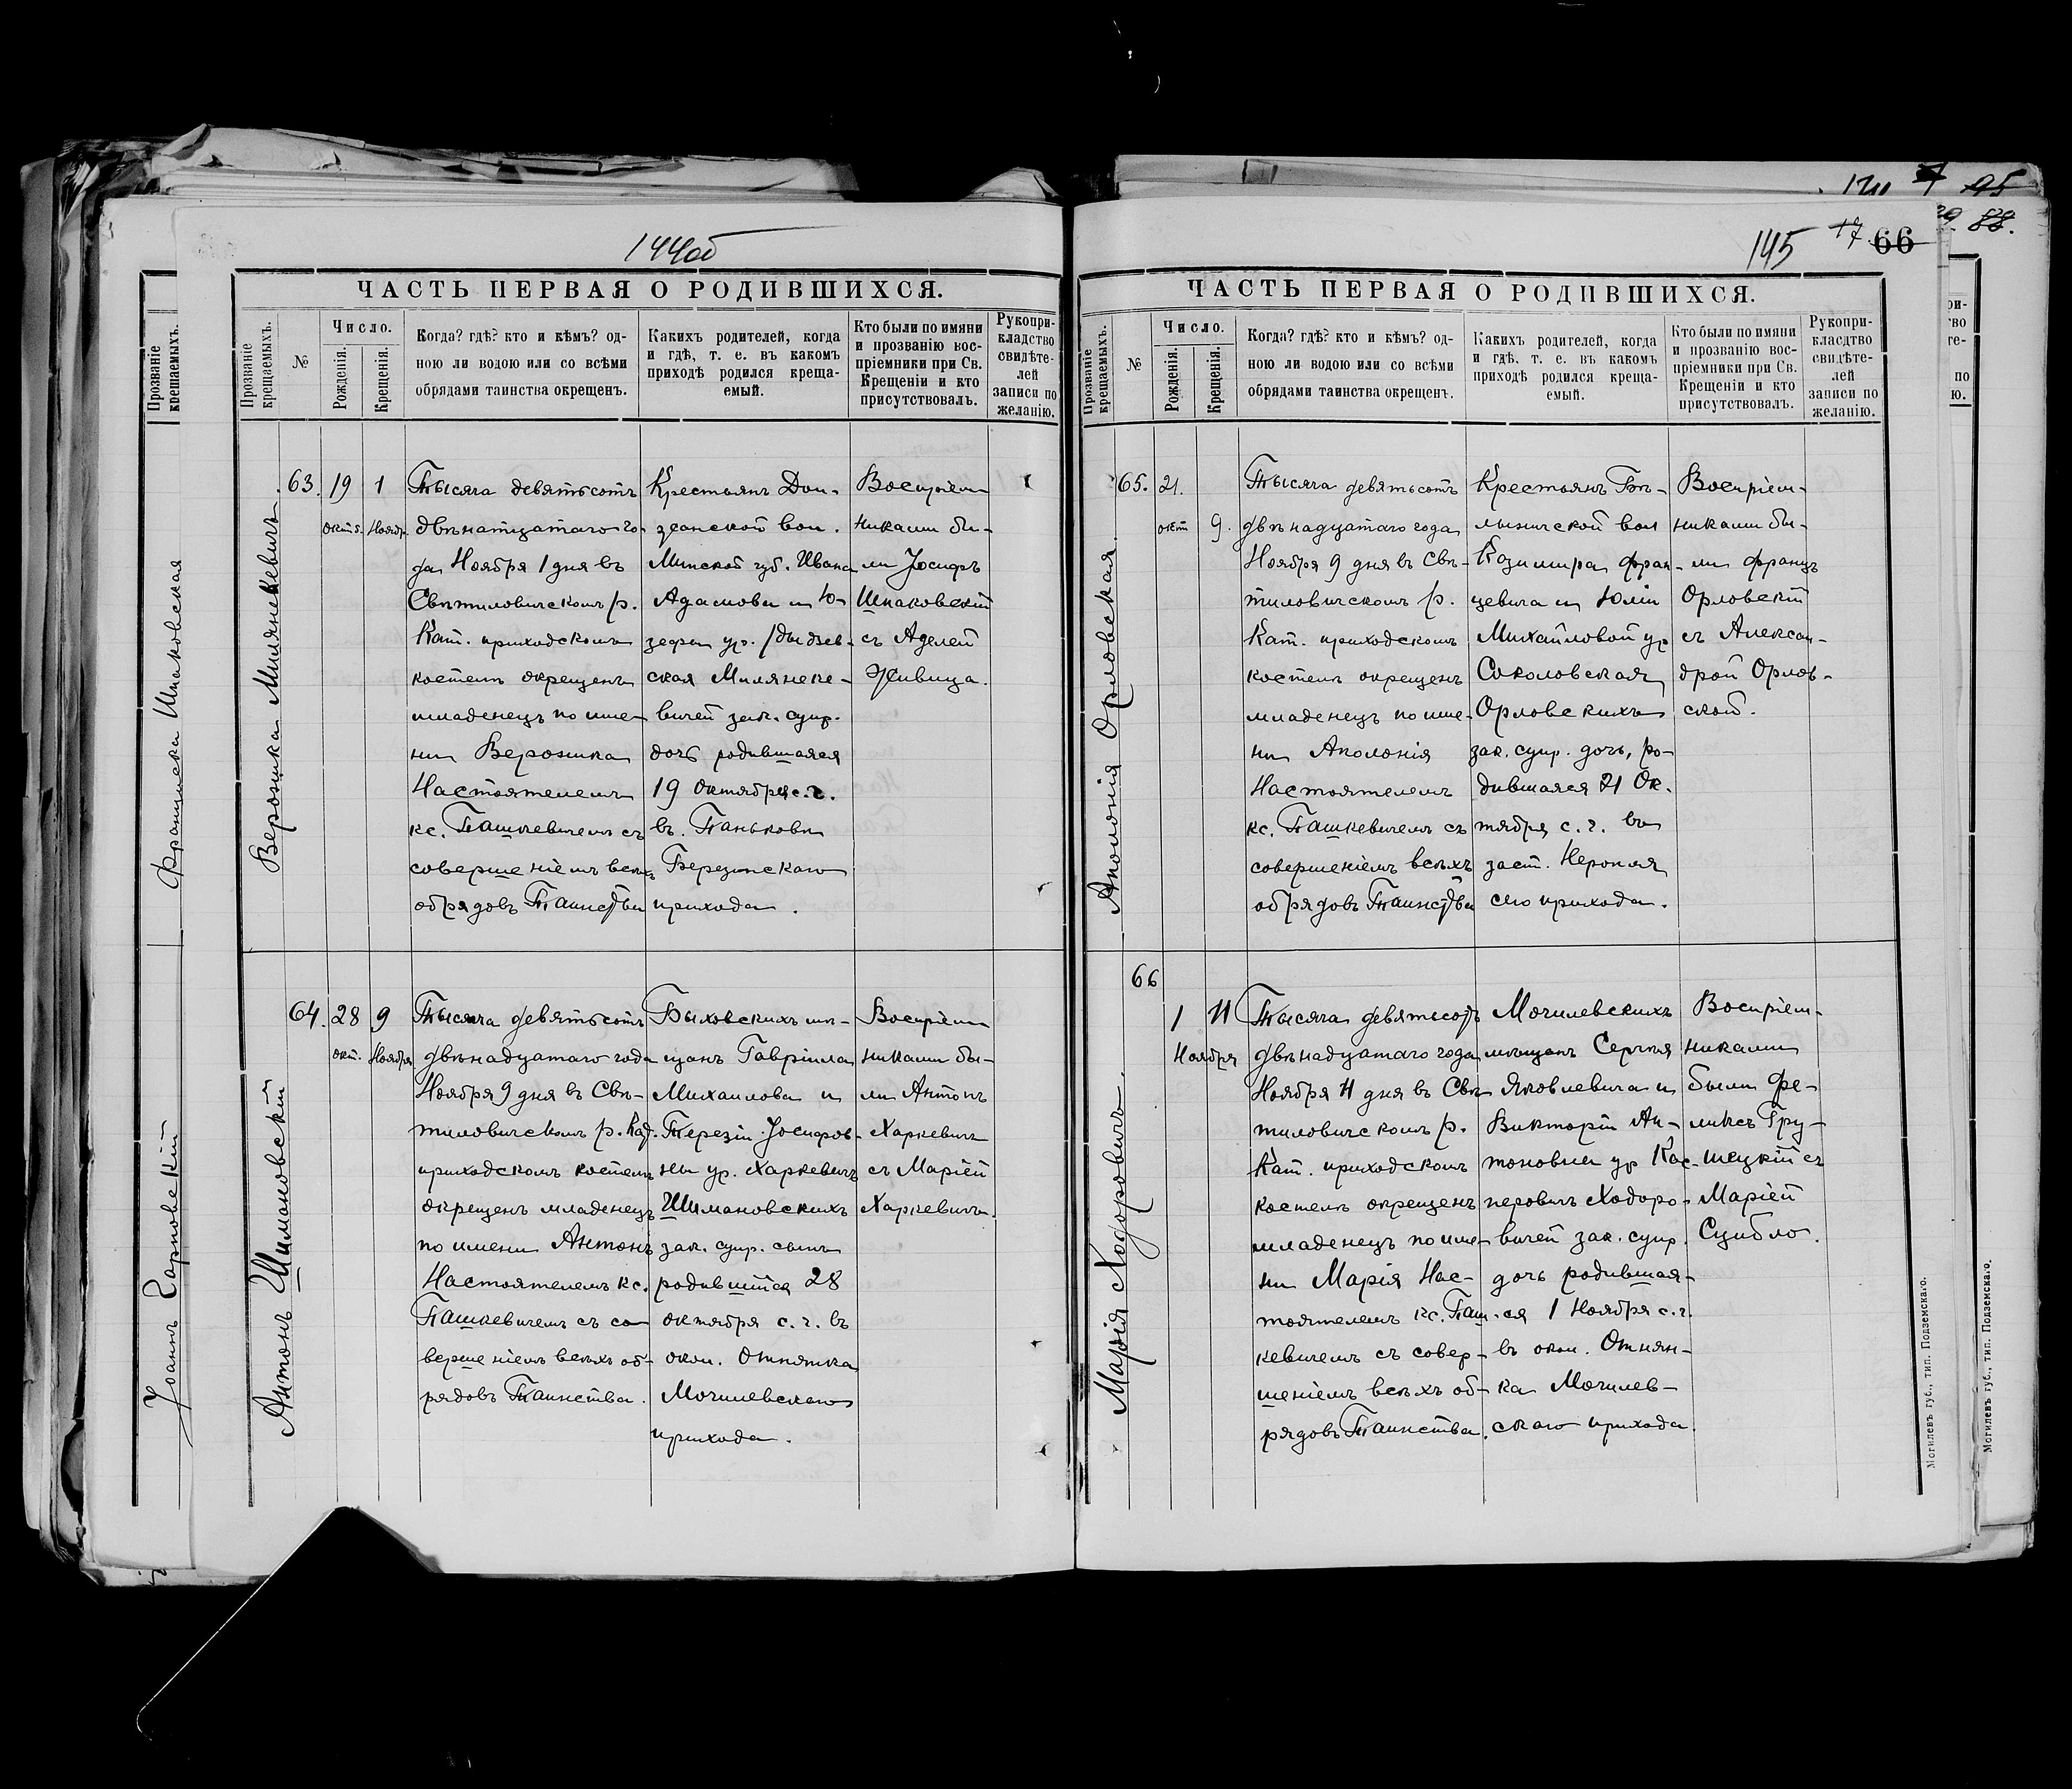 144об
ЧАСТЬ ПЕРВАЯ О РОДИВШИХСЯ.
Прозваніе крещаемыхъ.
№
Число.
Рожденія.
Крещенія.
Когда? гдѣ? кто и кѣмъ? од-
ною ли водою или со всѣми
обрядами таинства окрещенъ.
Какихъ родителей, когда
и гдѣ, т. е. въ какомъ
приходѣ родился креща-
емый.
Кто были по имяни
и прозванію вос-
пріемники при Св.
Крещеніи и кто
присутствовалъ.
Рукопри-
кладство
свидѣте-
лей
записи по
желанію.
Вероника Милянкевичъ
63.
19
окт.
1
Ноябр.
Тысяча девятьсотъ
двѣнатцатаго го-
да Ноября 1 дня въ
Свѣтиловическомъ р.
Кат. приходскомъ
костелѣ окрещенъ
младенецъ по име-
ни Вероника
Настоятелемъ
кс. Пашкевичемъ съ
совершеніемъ всѣхъ
обрядовъ Таинства
Крестьянъ
вол.
Минской губ. Ивана
Адамова и Ю-
зефы ур.
ская Милянке-
вичей зак. супр.
дочь родившаяся
19 Октября с. г.
въ. Паньковѣ
Березинскаго
прихода.
Воспріем-
никами бы-
ли Іосифъ
Шпаковскій
съ Аделей
Живица.
Антонъ Шимановскій
64.
28
окт.
9
Ноября
Тысяча девятьсотъ
двѣнадцатаго года
Ноября 9 дня въ Свѣ-
тиловическомъ р. Кат.
приходскомъ костелѣ
окрещенъ младенецъ
по имени Антонъ
Настоятелемъ кс.
Пашкевичемъ съ со-
вершеніемъ всѣхъ об-
рядовъ Таинства.
Быховскихъ мѣ-
щанъ Гавріила
Михаилова и
Терезіи Іосифов-
ны ур. Харкевичъ
Шимановскихъ
зак. супр. сынъ
родившійся 28
октября с. г. въ
окол.
Могилевскаго
прихода.
Воспріем-
никами бы-
ли Антонъ
Харкевичъ
съ Маріей
Харкевичъ.
145 17 66
ЧАСТЬ ПЕРВАЯ О РОДИВШИХСЯ.
Прозваніе крещаемыхъ.
№
Число.
Рожденія.
Крещенія.
Когда? гдѣ? кто и кѣмъ? од-
ною ли водою или со всѣми
обрядами таинства окрещенъ.
Какихъ родителей, когда
и гдѣ, т. е. въ какомъ
приходѣ родился креща-
емый.
Кто были по имяни
и прозванію вос-
пріемники при Св.
Крещеніи и кто
присутствовалъ.
Рукопри-
класдтво
свидѣте-
лей
записи по
желанію.
Аполонія Орловская.
65.
21.
окт
9.
Тысяча девятьсотъ
двѣнадцатаго года
Ноября 9 дня въ Свѣ-
тиловическомъ р.
Кат. приходскомъ
костелѣ окрещенъ
младенецъ по име-
ни Аполонія
Настоятелемъ
кс. Пашкевичемъ съ
совершеніемъ всѣхъ
обрядовъ Таинства
Крестьянъ Бѣ-
лыничской вол
Казимира Фран-
цевича и Юліи
Михайловой ур
Соколовская
Орловскихъ
зак. супр. дочь, ро-
дившаяся 21 Ок-
тября с. г. въ
заст. Неропля
сего прихода.
Воспріем-
никами бы-
ли Францъ
Орловскій
съ Алексан-
дрой Орлов-
ской.
Марія Ходоровичъ.
66
1
11
Ноября
Тысяча девятьсотъ
двѣнадцатаго года
Ноября 11 дня въ Свѣ-
тиловическомъ р.
Кат. приходскомъ
костелѣ окрещенъ
младенецъ по име-
ни Марія Нас-
тоятелемъ кс. Паш-
кевичемъ съ совер-
шеніемъ всѣхъ об-
рядовъ Таинства.
Могилевскихъ
мѣщанъ Сергѣя
Яковлевича и
Викторіи Ан-
тоновны ур Кас-
перовичъ Ходоро-
вичей зак. супр.
дочь родившая-
ся 1 Ноября с. г.
въ окол. Отнян-
ка Могилев-
скаго прихода.
Воспріем-
никами
были Фе-
ликсъ
съ
Маріей
Сцибло.
Франтишека Шпаковская
Іоаннъ Карповскій
Прозваніе крещаемыхъ.
Могилевъ губ., тип. Подземскаго.
Могилевъ губ., тип. Подземскаго.